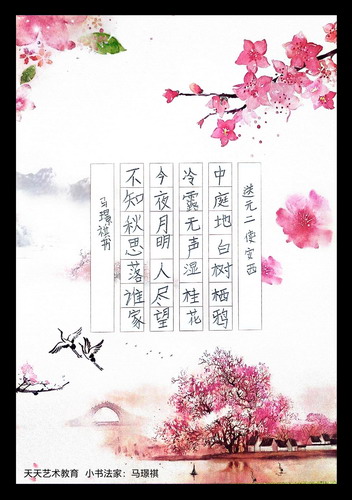 送元二使安西
中庭地白树栖鸦
冷露无声湿桂花
今夜月明人尽望
不知秋思落谁家
马璟祺书
天天艺术教育 小书法家：马璟祺